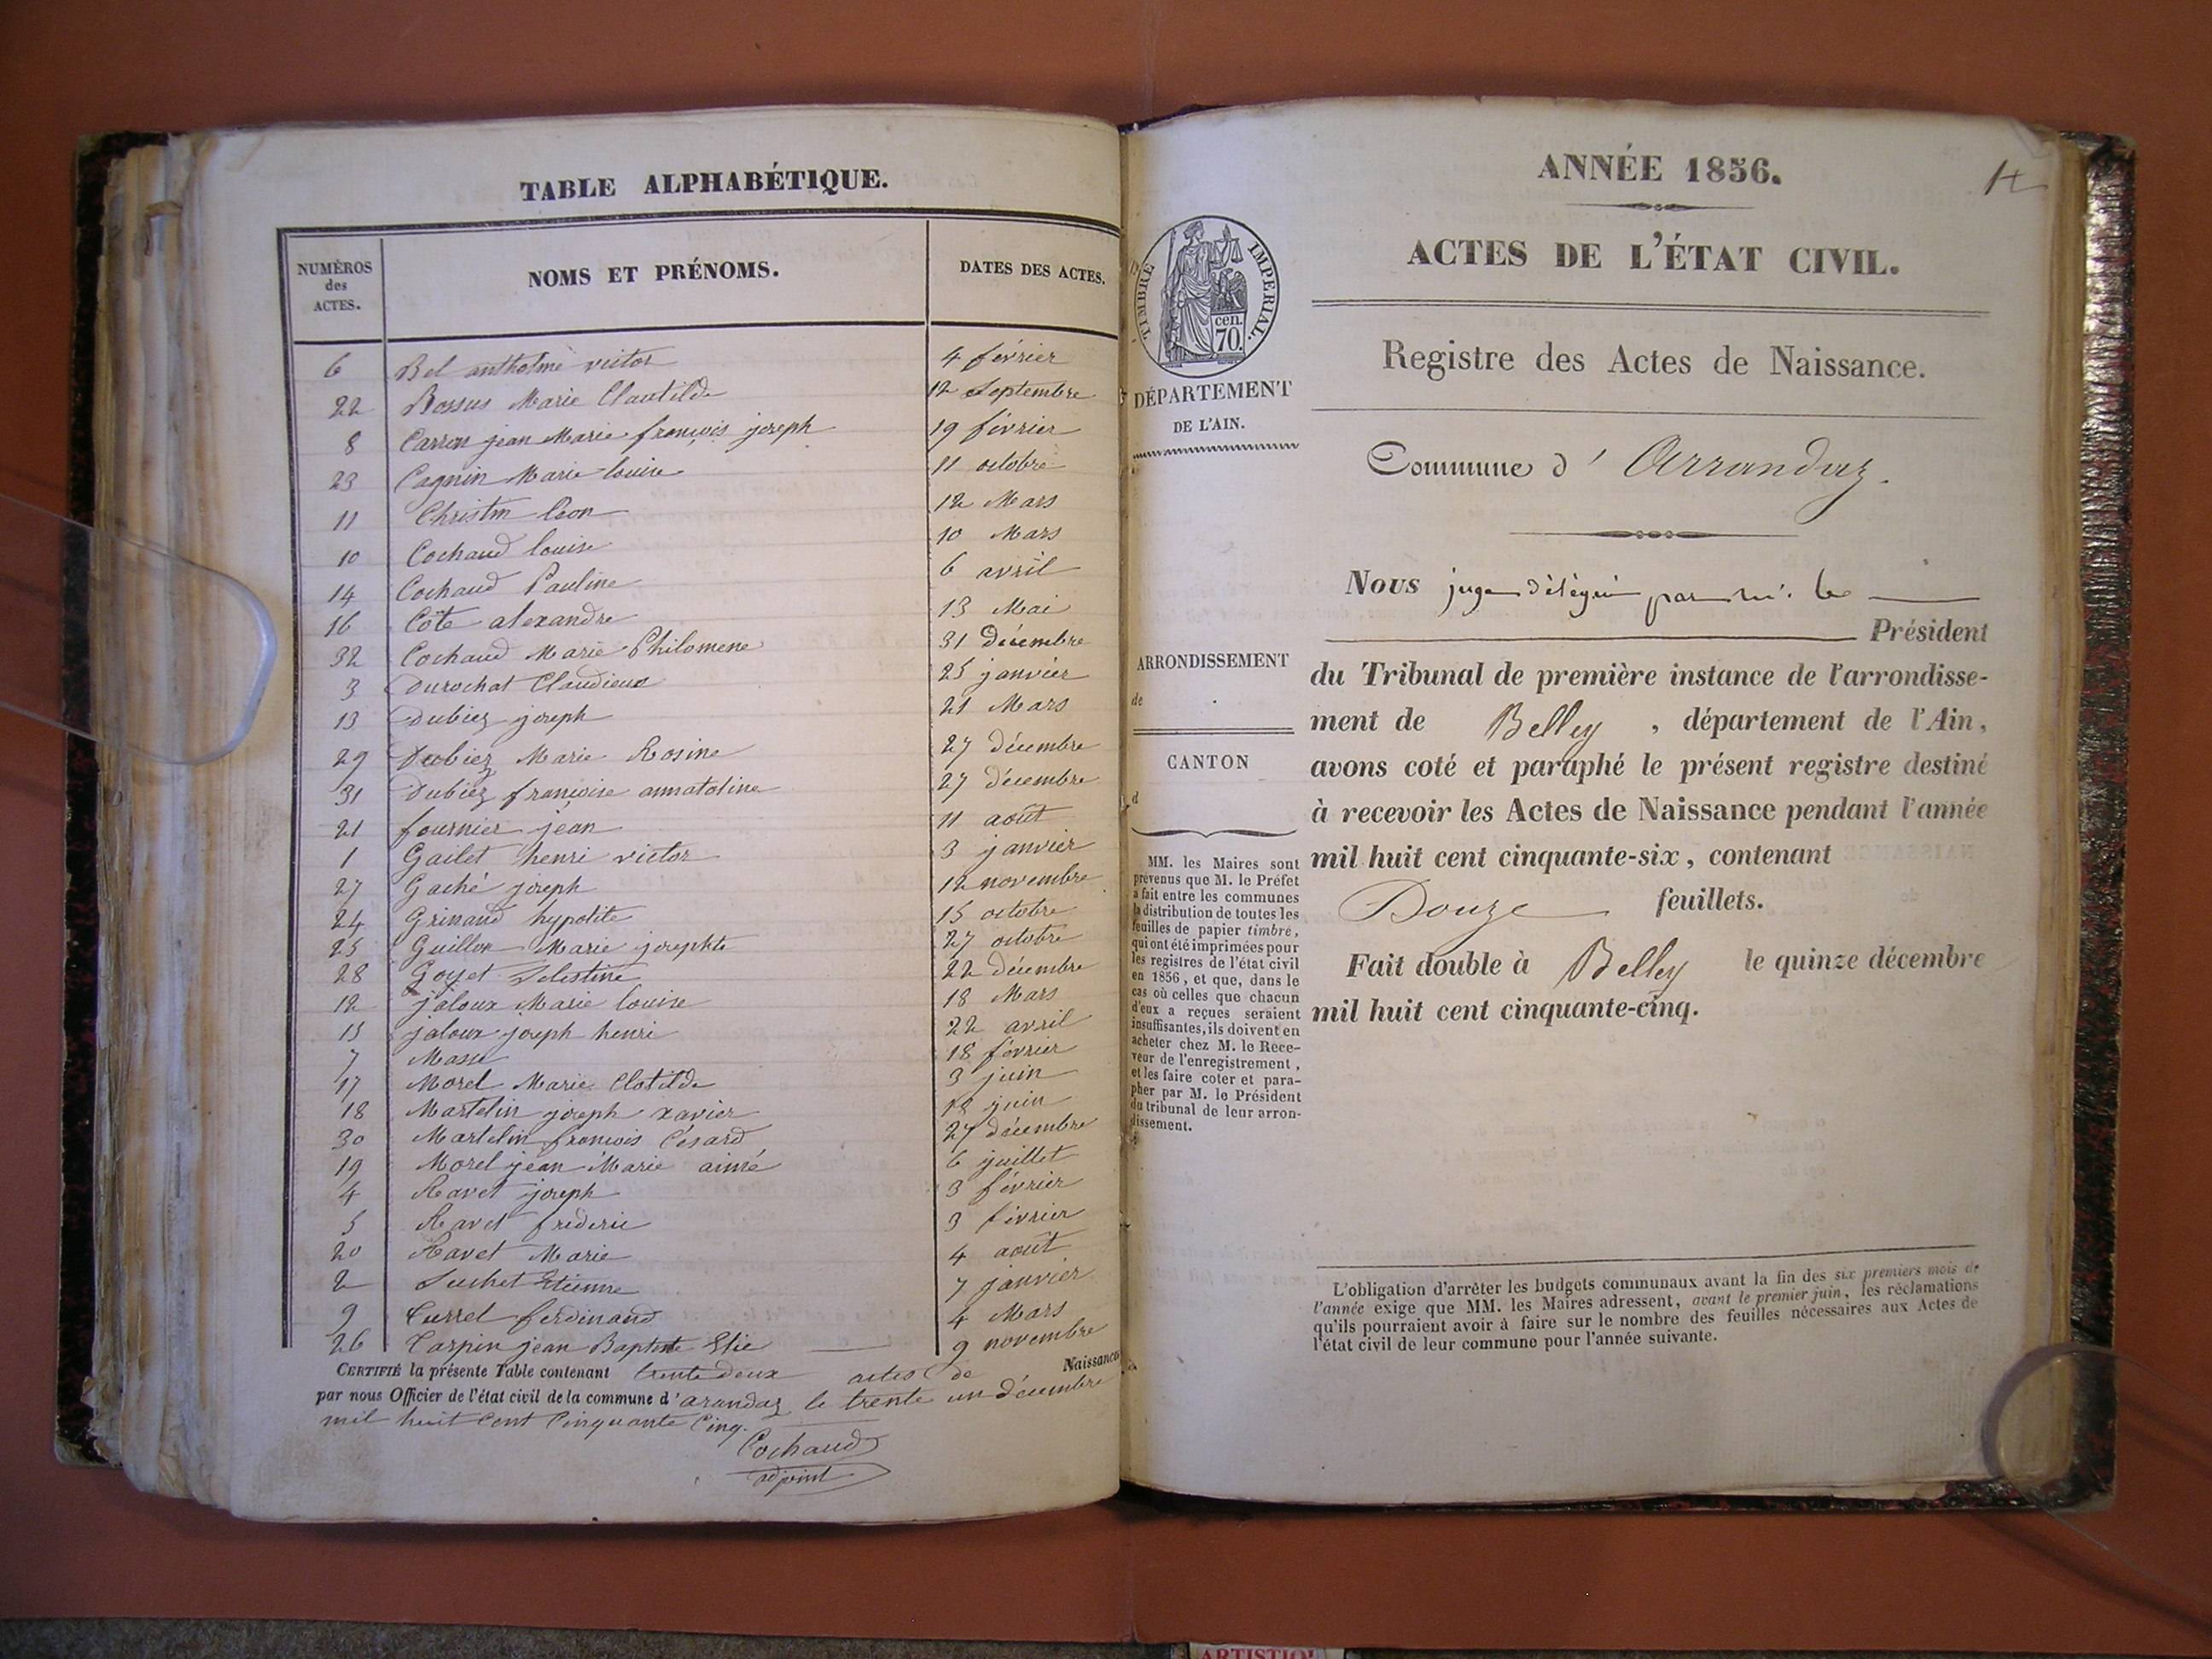 TABLE ALPHABÉTIQUE.
NUMÉROS des ACTES. NOMS ET PRÉNOMS. DATES DES ACTES.
6 Bel anthelme victor 4 février
22 Bossus Marie Clautilde 12 Septembre
8 Carron jean Marie françois joseph 19 février
23 Cagnin Marie louise 11 octobre
11 Christin Leon 12 Mars
10 Cochaud louise 10 Mars
14 Cochaud Pauline 6 avril
16 Côte alexandre 13 Mai
32 Cochaud Marie Philomene 31 Décembre
3 Durochat Claudieus 25 janvier
13 Dubiez joseph 21 Mars
29 Dubiez Marie Rosine 27 décembre
31 Dubiez françoise annatoline 27 décembre
21 fournier jean 11 août
1 Gailet henri victor 3 janvier
27 Gaché joseph 12 novembre
24 Grinand hypolite 15 octobre
25 Guillon Marie josephte 27 octobre
28 Goyet Selestine 22 décembre
12 jaloux Marie louise 18 Mars
15 jaloux joseph henri 22 avril
7 18 février
17 Morel Marie Clotilde 3 juin
18 Martelin joseph xavier 18 juin
30 Martelin françois Césard 27 décembre
19 Morel jean Marie aimé 6 juillet
4 Ravet joseph 3 février
5 Ravet frederic 3 février
20 Ravet Marie 4 août
2 Suchet Etienne 7 janvier
9 Currel ferdinand 4 Mars
26 Carpin jean Baptiste Elie 9 novembre
CERTIFIÉ la présente Table contenant trente deux actes de Naissance
par nous Officier de l'état civil de la commune d'arandaz le trente un décembre
mil huit Cent Cinquante Cinq.
Cochaud
adjoint
TIMBRE IMPERIAL.
cen.
70.
DÉPARTEMENT
DE L'AIN.
ARRONDISSEMENT
de
CANTON
d
MM. les Maires sont
prévenus que M. le Préfet
a fait entre les communes
la distribution de toutes les
feuilles de papier timbré,
qui ont été imprimées pour
les registres de l'état civil
en 1856, et que, dans le
cas où celles que chacun
d'eux a reçues seraient
insuffisantes, ils doivent en
acheter chez M. le Rece-
veur de l'enregistrement,
et les faire coter et para-
pher par M. le Président
du tribunal de leur arron-
dissement.
ANNÉE 1856.
ACTES DE L'ÉTAT CIVIL.
Registre des Actes de Naissance.
Commune d' Arrandaz.
Nous juge délégué par mr. le
Président
du Tribunal de première instance de l'arrondisse-
ment de Belley, département de l'Ain,
avons coté et paraphé le présent registre destiné
à recevoir les Actes de Naissance pendant l'année
mil huit cent cinquante-six, contenant
Douze feuillets.
Fait double à Belley le quinze décembre
mil huit cent cinquante-cinq.
L'obligation d'arrêter les budgets communaux avant la fin des six premiers mois de
l'année exige que MM. les Maires adressent, avant le premier juin, les réclamations
qu'ils pourraient avoir à faire sur le nombre des feuilles nécessaires aux Actes de
l'état civil de leur commune pour l'année suivante.